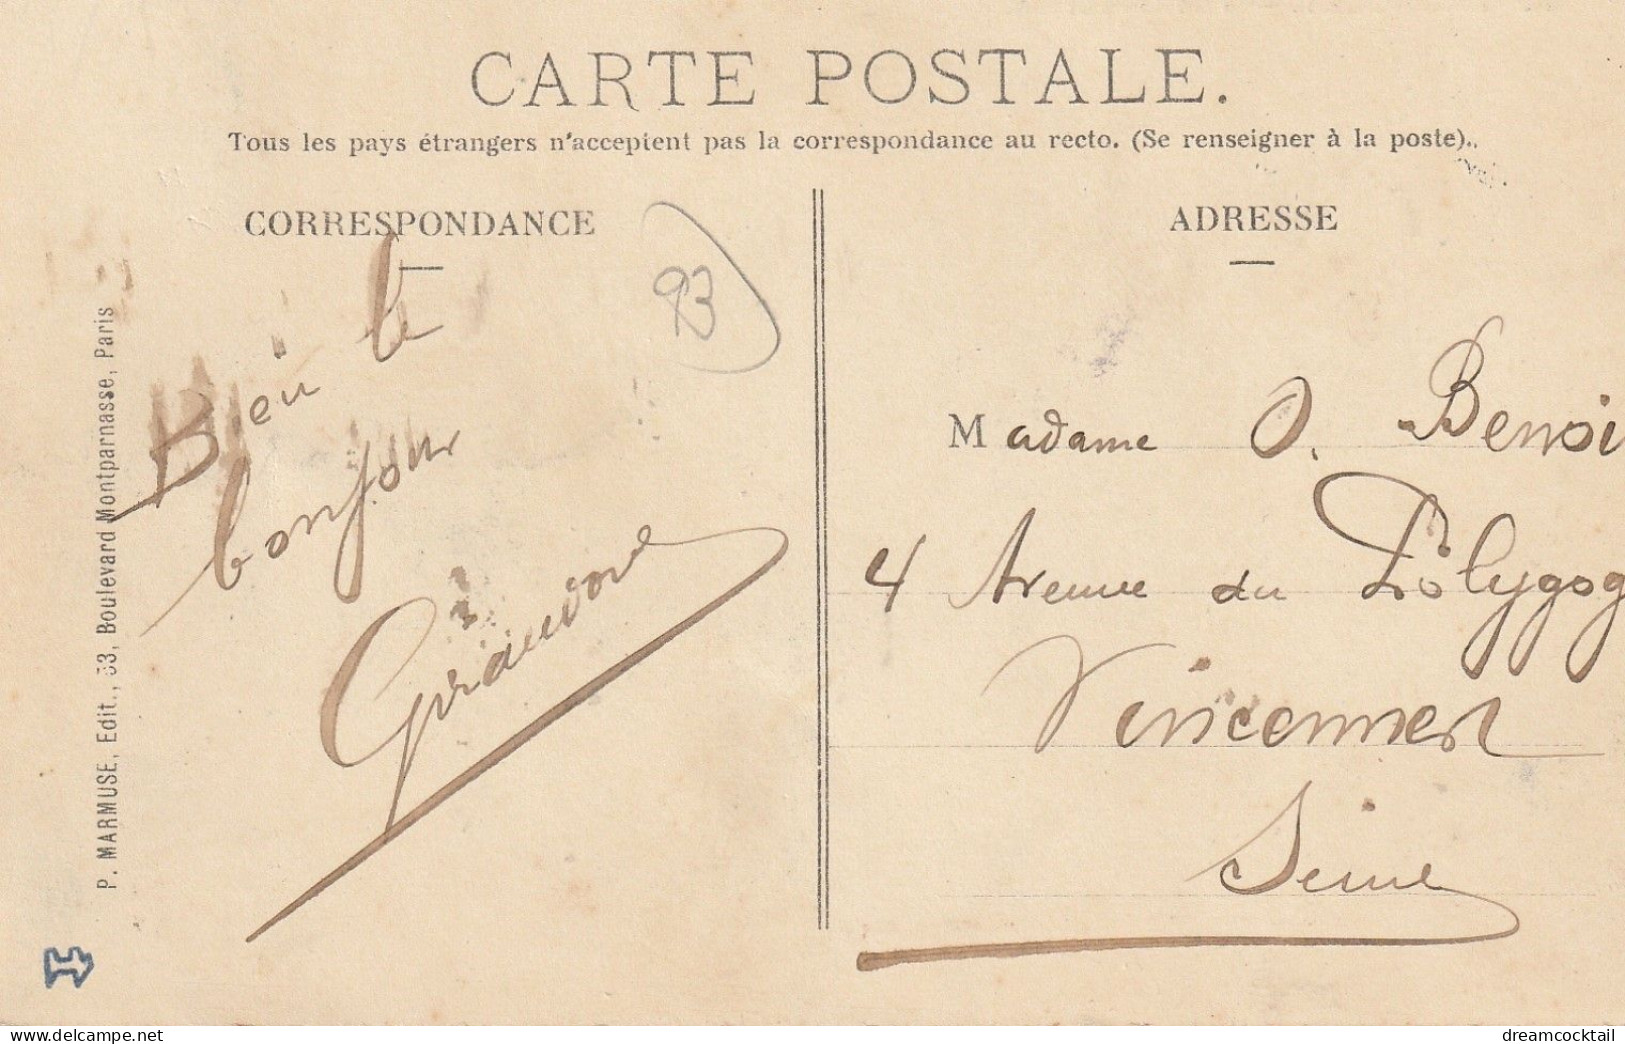 CARTE POSTALE.
Tous les pays étrangers n'acceptent pas la correspondance au recto. (Se renseigner à la poste)..
CORRESPONDANCE
93
Bien le
bonjour
P. MARMUSE, Edit., 33, Boulevard Montparnasse, Paris
ADRESSE
Madame O. Benoi
4 Avenue du Polygog
Vincennes
Seine
www.delcampe.net
dreamcocktail